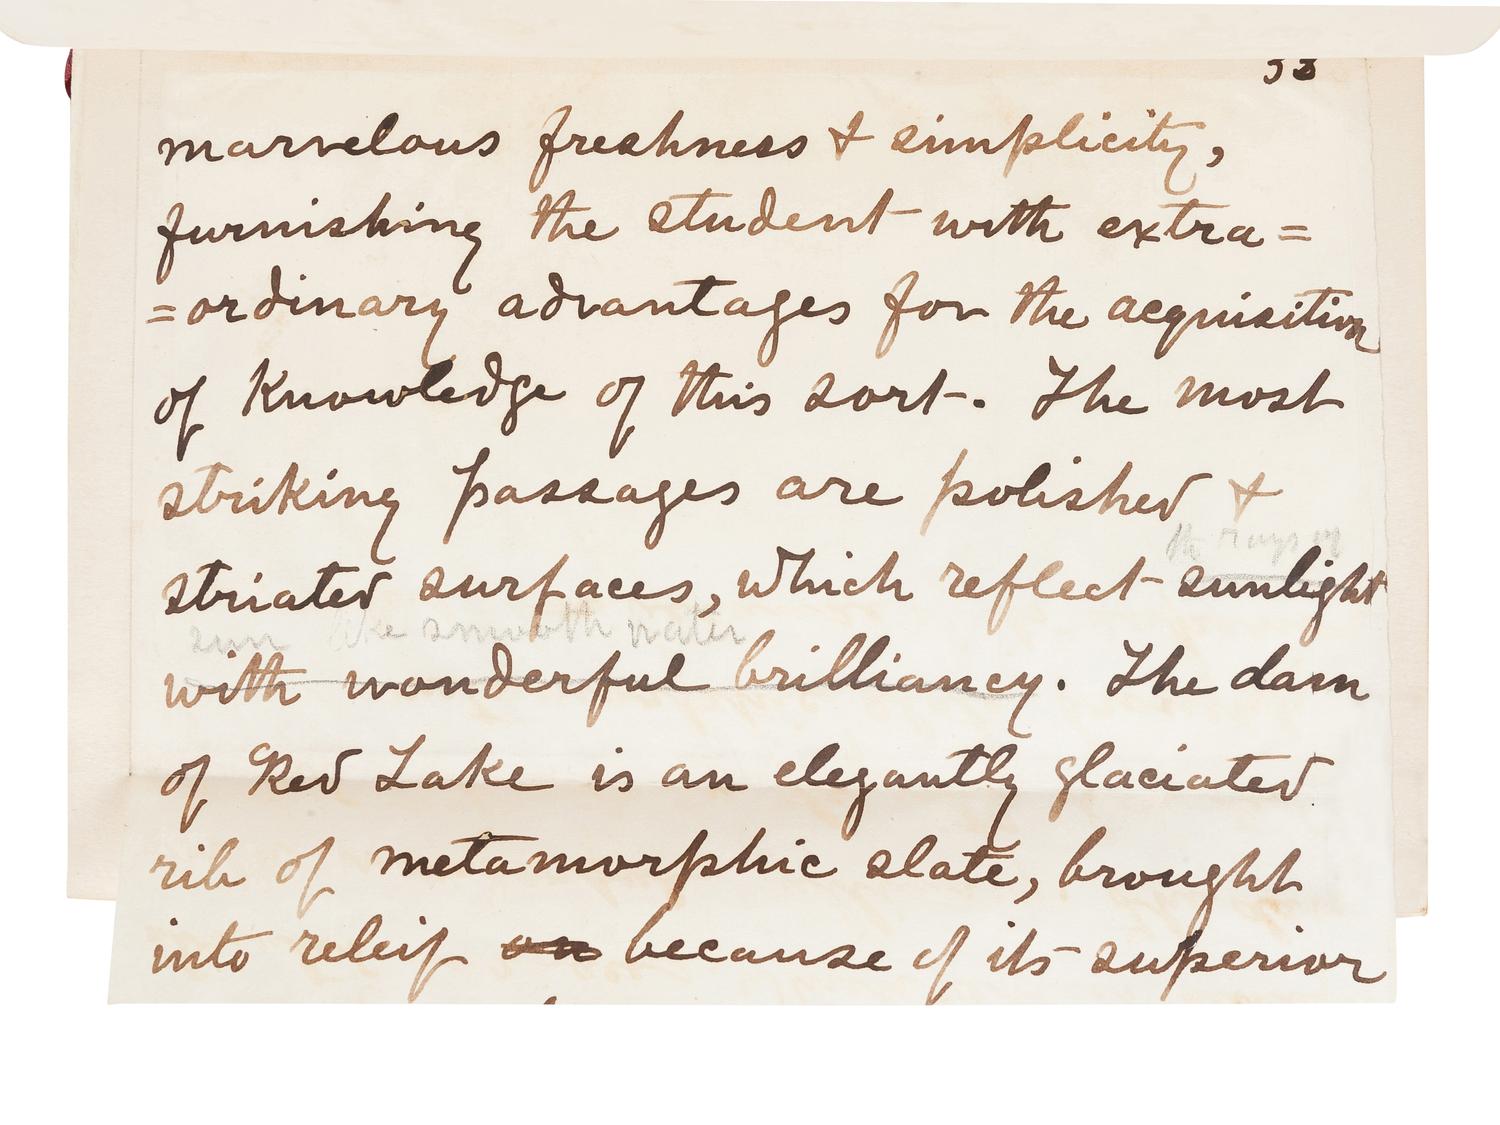 53
marvelous freshness & simplicity,
furnishing the student with extra=
=ordinary advantages for the acquisition
of Knowledge of this sort. The most
striking passages are polished &
the rays of
striated surfaces, which reflect sunlight
sun like smooth water
with wonderful brilliancy. The dam
of Red Lake is an elegantly glaciated
rib of metamorphic slate, brought
into releif on because of its superior